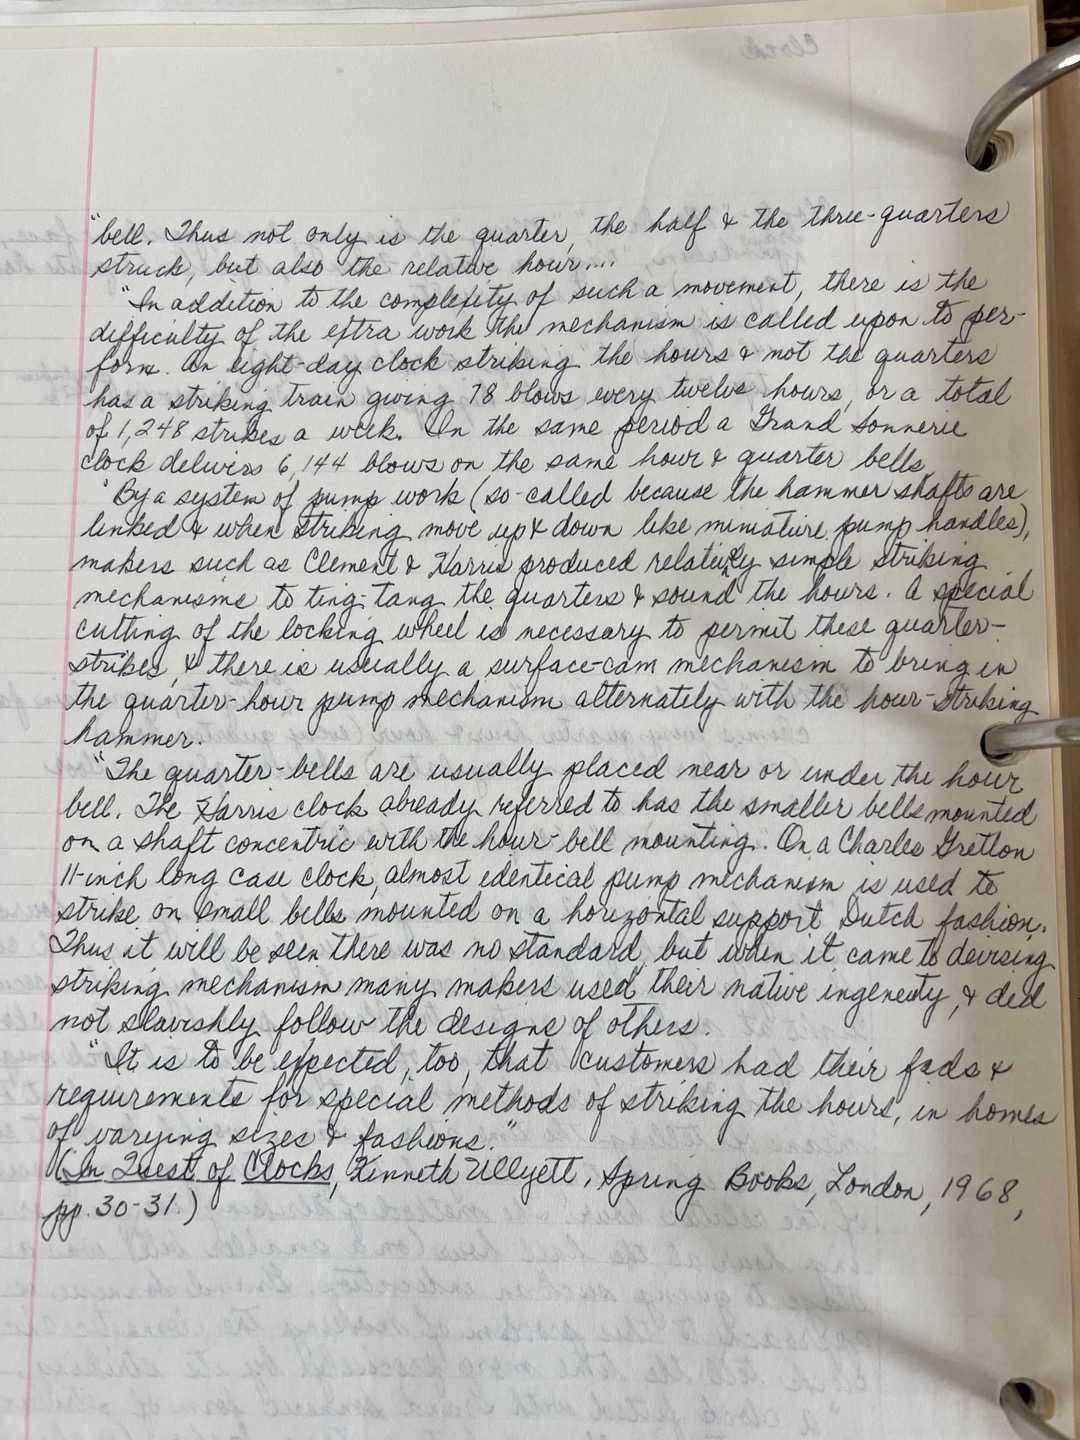 "bell. Thus not only is the quarter, the half & the three-quarters
struck, but also the relative hour....
"In addition to the complexity of such a movement, there is the
difficulty of the extra work the mechanism is called upon to per-
form. An eight-day clock striking the hours & not the quarters
has a striking train giving 78 blows every twelve hours, or a total
of 1,248 strikes a week. In the same period a Grand Sonnerie
clock delivers 6,144 blows on the same hour & quarter bells.
"By a system of pump work (so-called because the hammer shafts are
linked & when striking move up & down like miniature pump handles),
makers such as Clement & Harris produced relatively simple striking
mechanisms to ting-tang the quarters & sound the hours. A special
cutting of the locking wheel is necessary to permit these quarter-
strikes, & there is usually a surface-cam mechanism to bring in
the quarter-hour pump mechanism alternately with the hour-striking
hammer.
"The quarter-bells are usually placed near or under the hour
bell. The Harris clock already referred to has the smaller bells mounted
on a shaft concentric with the hour-bell mounting. On a Charles Gretton
11-inch long case clock, almost identical pump mechanism is used to
strike on small bells mounted on a horizontal support, Dutch fashion.
Thus it will be seen there was no standard, but when it came to devising
striking mechanism many makers used their native ingenuity, & did
not slavishly follow the designs of others.
"It is to be expected, too, that customers had their fads &
requirements for special methods of striking the hours, in homes
of varying sizes & fashions."
(In Quest of Clocks, Kenneth Ullyett, Spring Books, London, 1968,
pp. 30-31.)